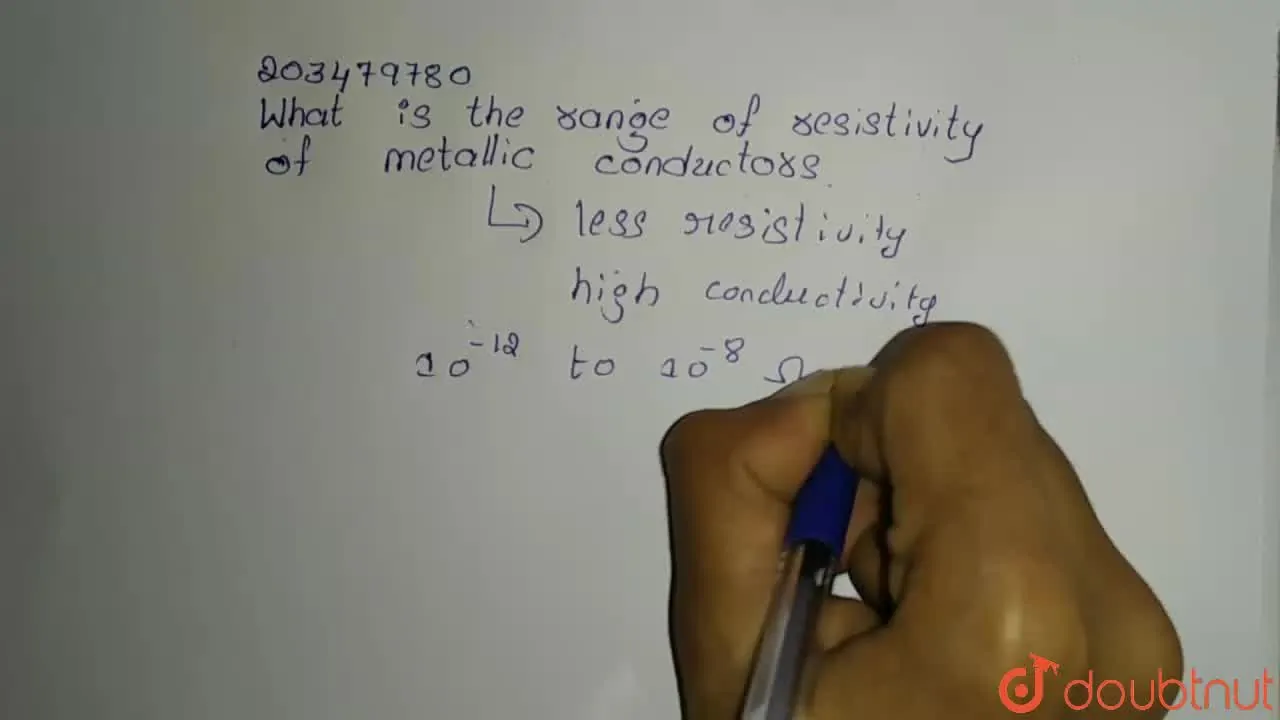 203479780
What is the range of resistivity
of metallic conductors.
↳ less resistivity
high conductivity
10⁻¹² to 10⁻⁸ Ω
doubtnut